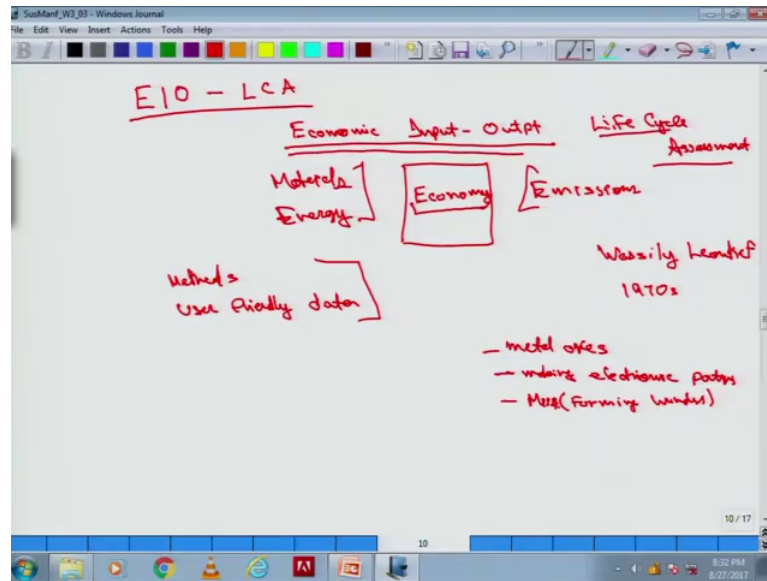 SusManf_W3_03 - Windows Journal
File Edit View Insert Actions Tools Help
EIO - LCA
Economic Input - Outpt
Life Cycle
Assessment
Materials
Energy
Economy
Emission
Wassily Leontief
1970s
Methods
User friendly data
- metal ores
- making electronic parts
- (Forming
10 / 17
10
8:32 PM
8/27/2017